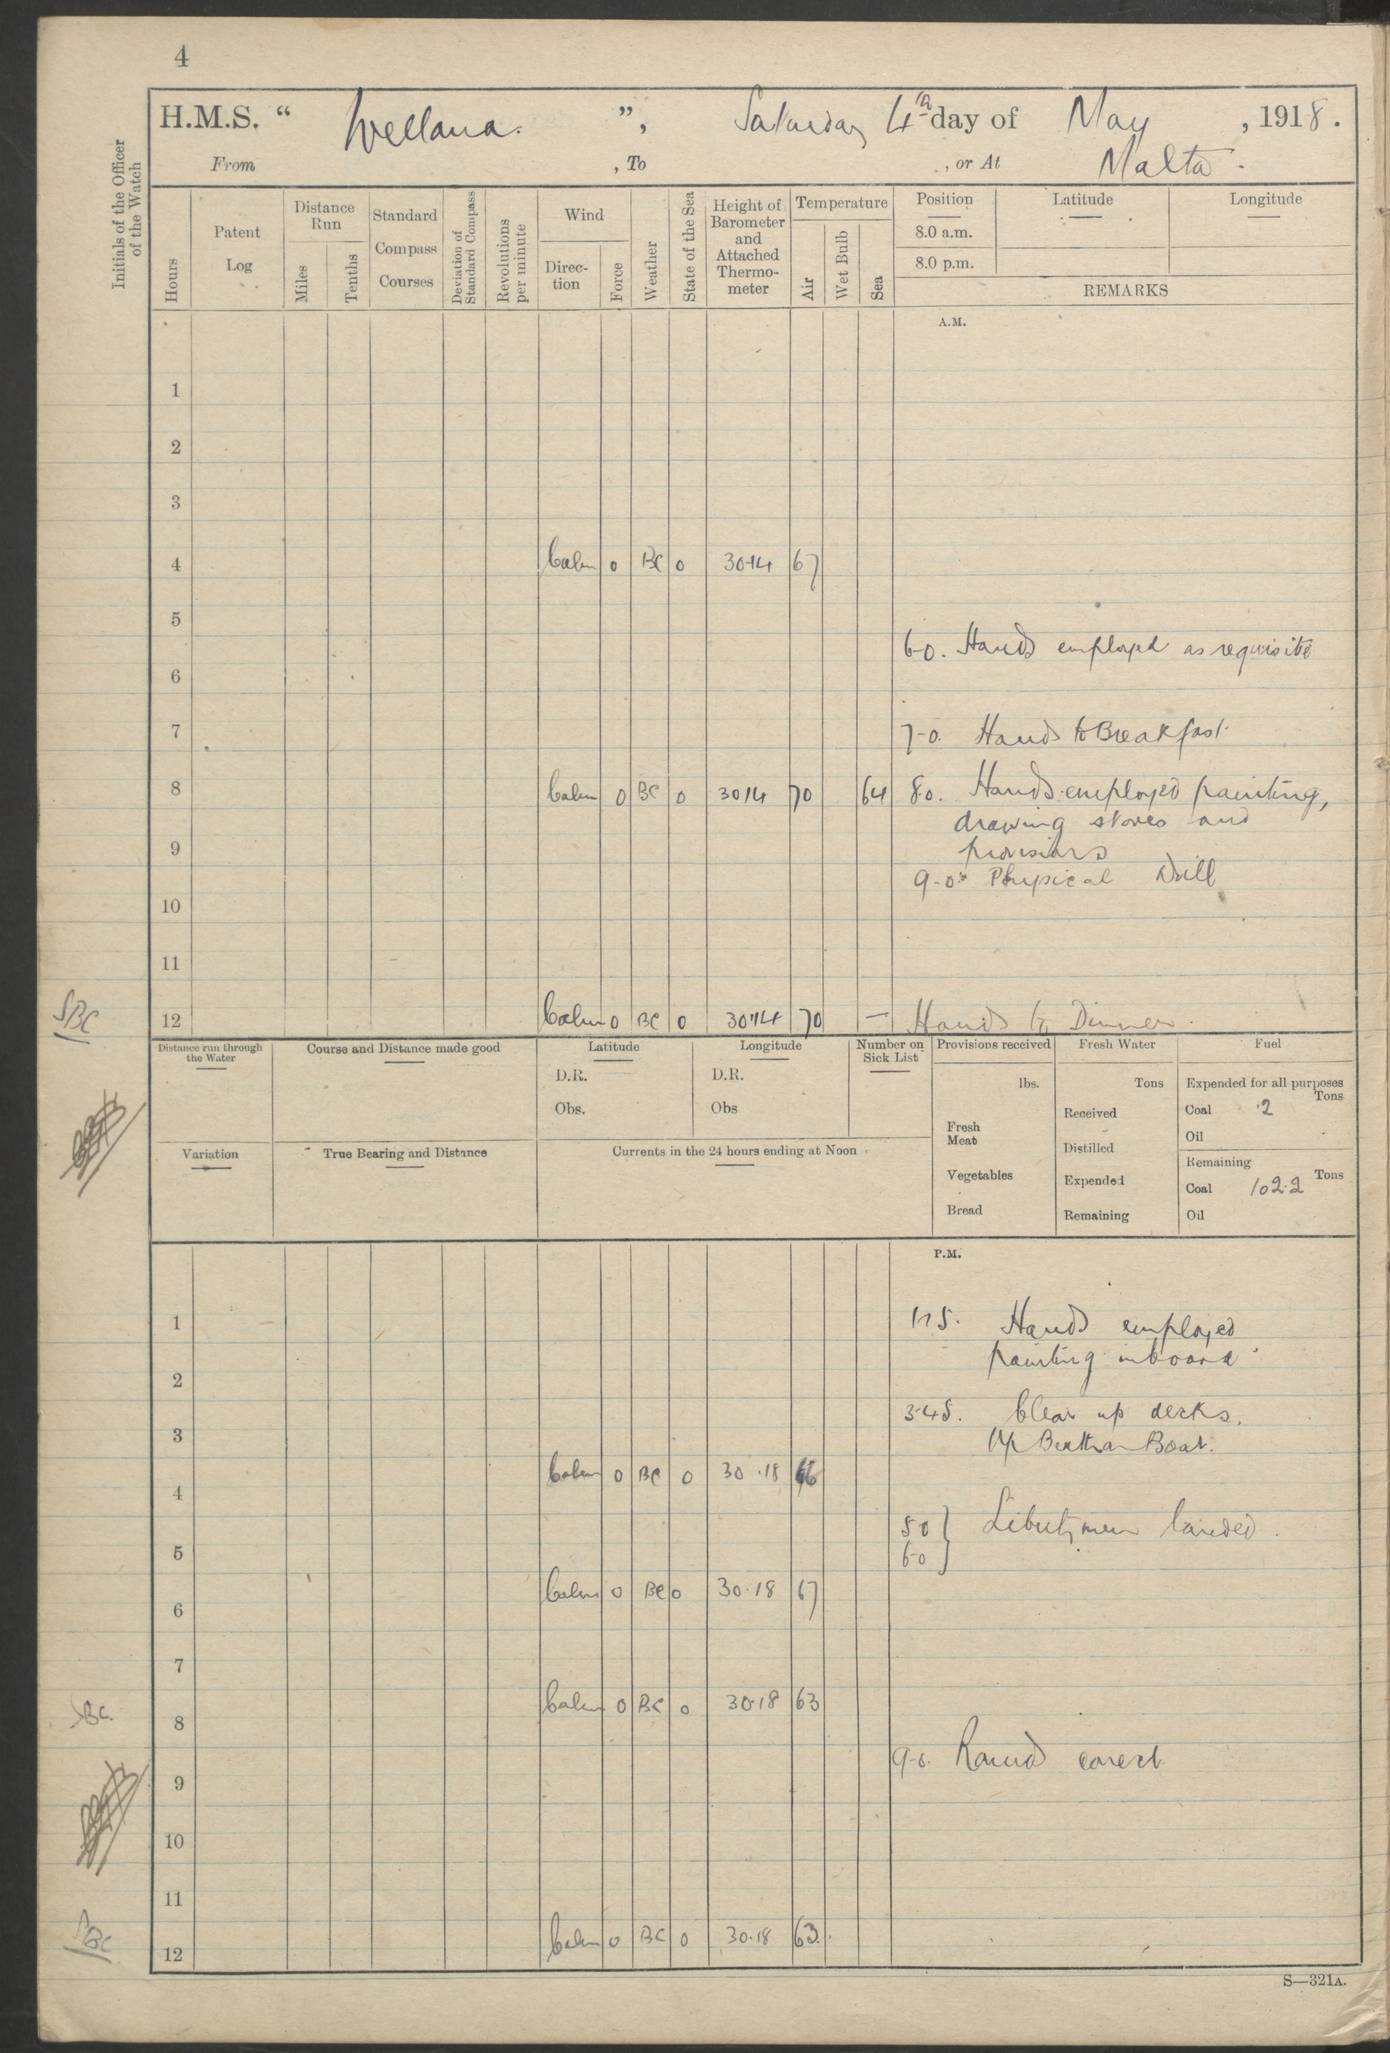 4
H.M.S. “ Wellana. ”, Saturday 4th day of May, 1918.
From , To , or At Malta.
Initials of the Officer of the Watch
Hours
Patent Log
Distance Run
Miles
Tenths
Standard Compass Courses
Deviation of Standard Compass
Revolutions per minute
Wind
Direc-tion
Force
Weather
State of the Sea
Height of Barometer and Attached Thermo-meter
Temperature
Air
Wet Bulb
Sea
Position Latitude Longitude
8.0 a.m.
8.0 p.m.
REMARKS
A.M.
1
2
3
4 Calm 0 BC 0 30.14 67
5
6.0. Hands employed as requisite
6
7 7-0. Hands to Breakfast.
8 Calm 0 BC 0 3014 70 64 8.0. Hands employed painting,
drawing stores and
9 provisions
9-0. Physical Drill
10
11
SBC
12 Calm 0 BC 0 30.14 70 — Hands to Dinner.
Distance run through the Water
Course and Distance made good
Latitude
D.R.
Obs.
Longitude
D.R.
Obs
Number on Sick List
Provisions received
lbs.
Fresh Meat
Vegetables
Bread
Fresh Water
Tons
Received
Distilled
Expended
Remaining
Fuel
Expended for all purposes
Tons
Coal .2
Oil
Remaining
Tons
Coal 102.2
Oil
Variation
True Bearing and Distance
Currents in the 24 hours ending at Noon
P.M.
1 1.15. Hands employed
painting inboard.
2
3.45. Clear up decks.
3 Up Berthon Boat.
4 Calm 0 BC 0 30.18 66
5.0 } Libertymen landed.
5 6.0
6 Calm 0 BC 0 30.18 67
7
BC.
8 Calm 0 BC 0 30.18 63
9-0. Rounds correct.
9
10
11
SBC
12 Calm 0 BC 0 30.18 63.
S—321A.